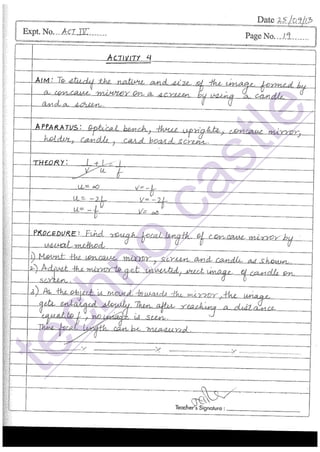 Date 25/09/13
Expt. No. ACT.IV
Page No. 19
ACTIVITY 4
AIM: To study the nature and size of the image formed by
a concave mirror on a screen by using a candle
and a screen.
APPARATUS: Optical bench, three uprights, concave mirror,
holder, candle, card board screen.
THEORY: 1/v + 1/u = 1/f
u = ∞ v = -f
u = -2f v = -2f
u = -f v = ∞
PROCEDURE: Find rough focal length of concave mirror by
usual method.
1) Mount the concave mirror, screen and candle as shown
2) Adjust the mirror to get inverted, erect image of candle on
screen.
3) As the object is moved towards the mirror, the image
gets enlarged slowly. Then after reaching a distance
equal to f, no image is seen.
Thus focal length can be measured.
Teacher's Signature :
techno castle